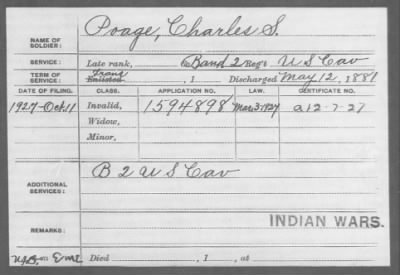 NAME OF SOLDIER: Poage, Charles S.
SERVICE: Late rank, Band 2 Reg't U S Cav
TERM OF SERVICE: Trans Enlisted , 1 Discharged May 12, 1881
DATE OF FILING. CLASS. APPLICATION NO. LAW. CERTIFICATE NO.
1927-Oct. 11 Invalid, 1594898 Mar 3-1927 a 12-7-27
Widow,
Minor,
ADDITIONAL SERVICES: B 2 U S Cav
REMARKS: INDIAN WARS.
Died , 1 , at